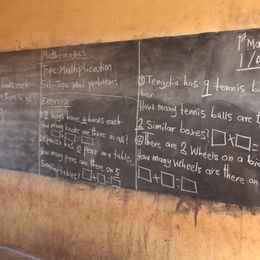 books each.
there in
Mathematics
Topic Multiplication
Sub-Topic Word problems
Exercise
8 boys have 4 books each.
How many books are there in all?
has 10 pens on a table,
How many pens are there on 5
Similar tables? □+□=□
Tengdia has 9 tennis b
box.
How many tennis balls are th
2 Similar boxes? □+□=
There are 2 Wheels on a bi
How many Wheels are there on
□+□=□
1st Ma